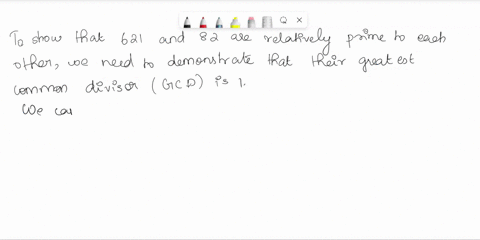 To show that 621 and 82 are relatively prime to each
other, we need to demonstrate that their greatest
common divisor (GCD) is 1.
We ca